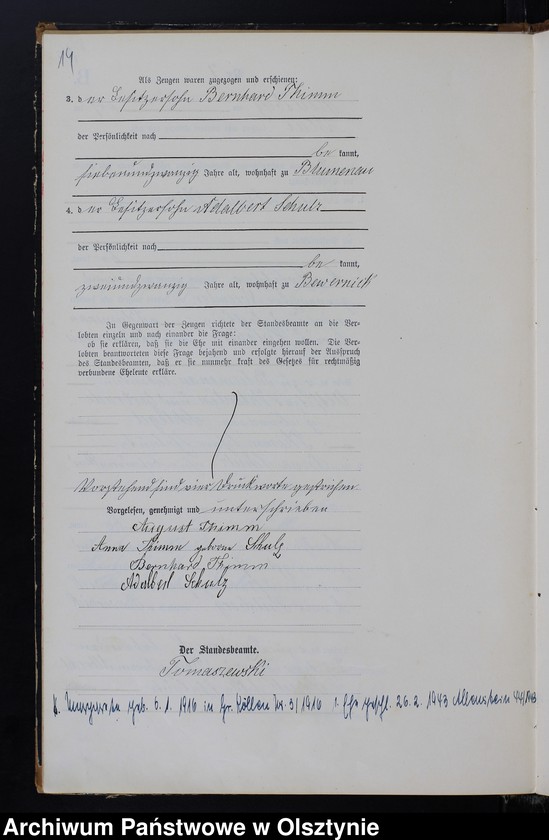 14
Als Zeugen waren zugezogen und erschienen:
3. der Besitzersohn Bernhard Thimm
der Persönlichkeit nach
be kannt,
siebenundzwanzig Jahre alt, wohnhaft zu Blumenau
4. der Besitzersohn Adalbert Schulz
der Persönlichkeit nach
be kannt,
zweiundzwanzig Jahre alt, wohnhaft zu Bewernick
In Gegenwart der Zeugen richtete der Standesbeamte an die Ver-
lobten einzeln und nach einander die Frage:
ob sie erklären, daß sie die Ehe mit einander eingehen wollen. Die Ver-
lobten beantworteten diese Frage bejahend und erfolgte hierauf der Ausspruch
des Standesbeamten, daß er sie nunmehr kraft des Gesetzes für rechtmäßig
verbundene Eheleute erkläre.
Vorstehend sind vier Druckworte gestrichen
Vorgelesen, genehmigt und unterschrieben
August Thimm
Anna Thimm geborene Schulz
Bernhard Thimm
Adalbert Schulz
Der Standesbeamte.
Tomaszewski
Margareta geb. 6. 1. 1916 in Gr. Köllen Nr. 3/1916 1. Ehe geschl. 26. 2. 1943 Allenstein
Archiwum Państwowe w Olsztynie